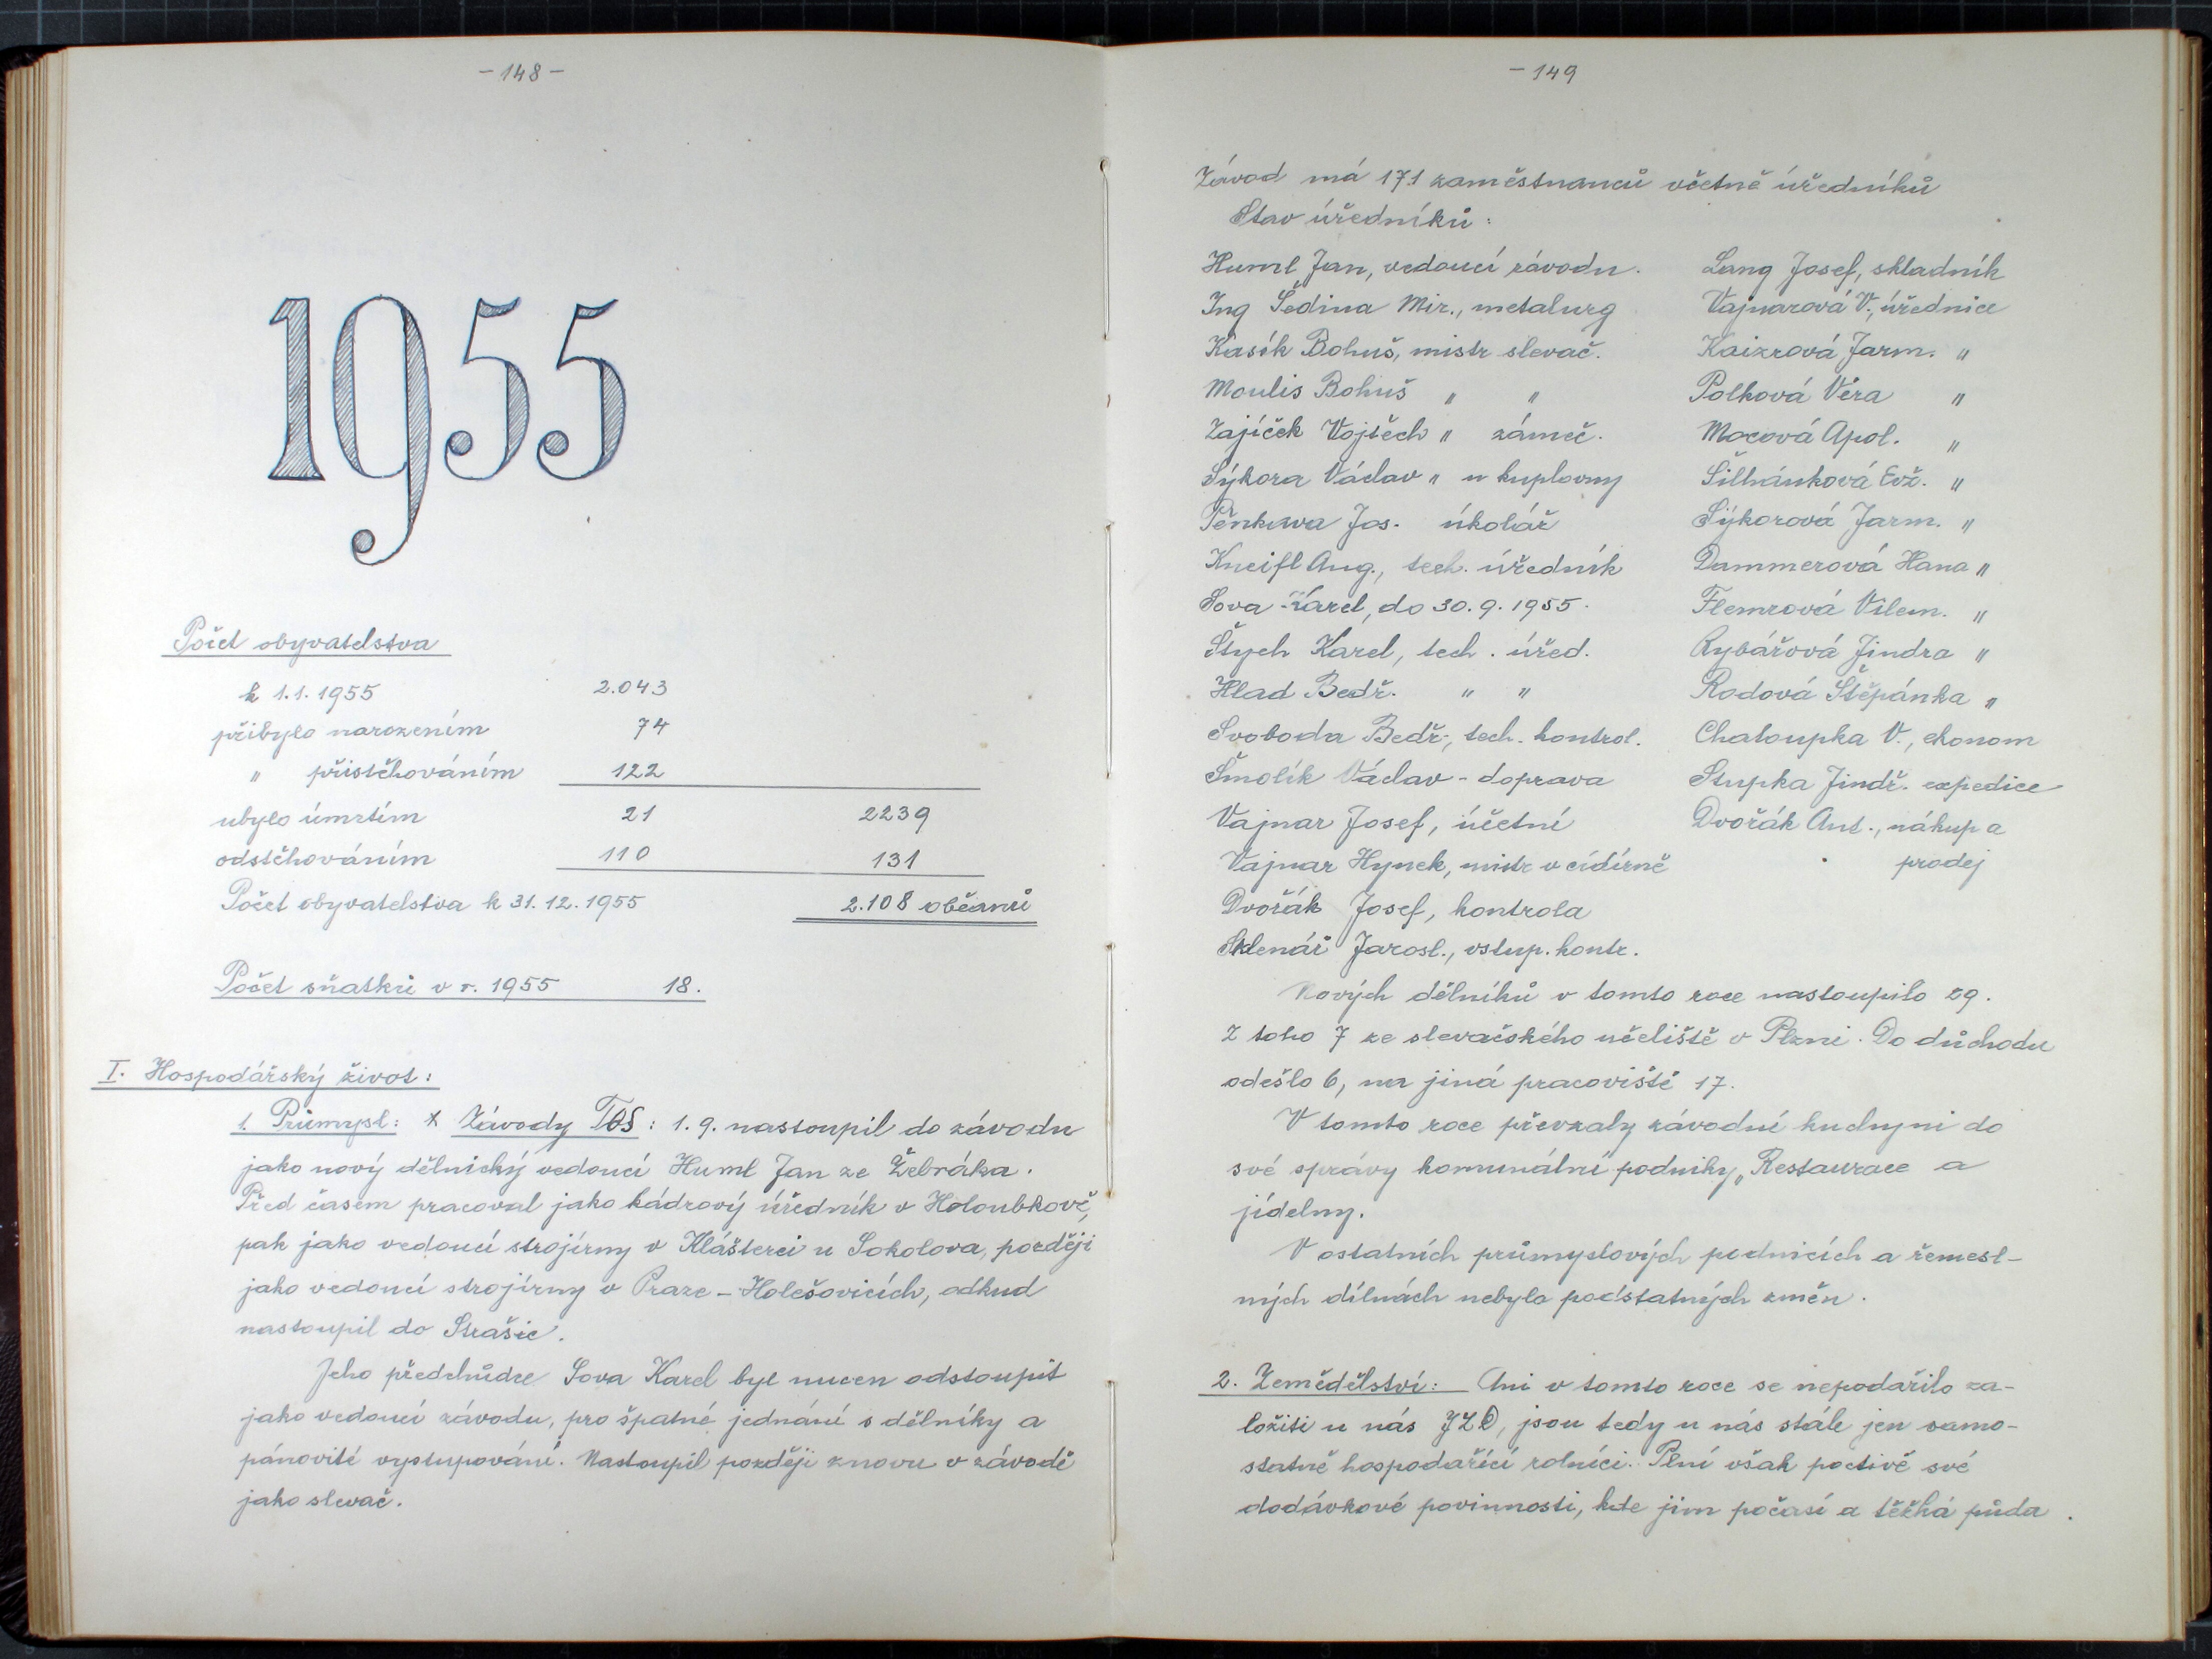 - 148 -
1955
Počet obyvatelstva
k 1.1. 1955 2.043
přibylo narozením 74
" přistěhováním 122
ubylo úmrtím 21 2239
odstěhováním 110 131
Počet obyvatelstva k 31. 12. 1955 2.108 občanů
Počet sňatků v r. 1955 18.
I. Hospodářský život:
1. Průmysl: x Závody TOS: 1. 9. nastoupil do závodu
jako nový dělnický vedoucí Huml Jan ze Žebráka.
Před časem pracoval jako kádrový úředník v Holoubkově,
pak jako vedoucí strojírny v Klášterci u Sokolova, později
jako vedoucí strojírny v Praze - Holešovicích, odkud
nastoupil do Strašic.
Jeho předchůdce Sova Karel byl nucen odstoupit
jako vedoucí závodu, pro špatné jednání s dělníky a
pánovité vystupování. Nastoupil později znovu v závodě
jako slevač.
- 149
Závod má 171 zaměstnanců včetně úředníků
Stav úředníků:
Huml Jan, vedoucí závodu. Lang Josef, skladník
Ing Šedina Mir., metalurg Vajnarová V., úřednice
Kasík Bohuš, mistr slevač. Kaizrová Jarm. "
Moulis Bohuš " " Polková Věra "
Zajíček Vojtěch " zámeč. Mocová Apol. "
Sýkora Václav " u kuplovny Šilhánková Evž. "
Jos. úkolář Sýkorová Jarm. "
Kneifl Aug., tech. úředník Dammerová Hana "
Sova Karel, do 30. 9. 1955. Flemrová Vilem. "
Štych Karel, tech. úřed. Rybářová Jindra "
Hlad Bedř. " " Rodová Štěpánka "
Svoboda Bedř., tech. kontrol. Chaloupka V., ekonom
Šmolík Václav - doprava Stupka Jindř. expedice
Vajnar Josef, účetní Dvořák Ant., nákup a
Vajnar Hynek, mistr v cídírně prodej
Dvořák Josef, kontrola
Sklenář Jarosl., vstup. kontr.
Nových dělníků v tomto roce nastoupilo 29.
Z toho 7 ze slevačského učeliště v Plzni. Do důchodu
odešlo 6, na jiná pracoviště 17.
V tomto roce převzaly závodní kuchyni do
své správy komunální podniky „Restaurace a
jídelny.
V ostatních průmyslových podnicích a řemesl-
ných dílnách nebylo podstatných změn.
2. Zemědělství: Ani v tomto roce se nepodařilo za-
ložiti u nás JZD, jsou tedy u nás stále jen samo-
statně hospodařící rolníci. Plní však poctivě své
dodávkové povinnosti, kde jim počasí a těžká půda